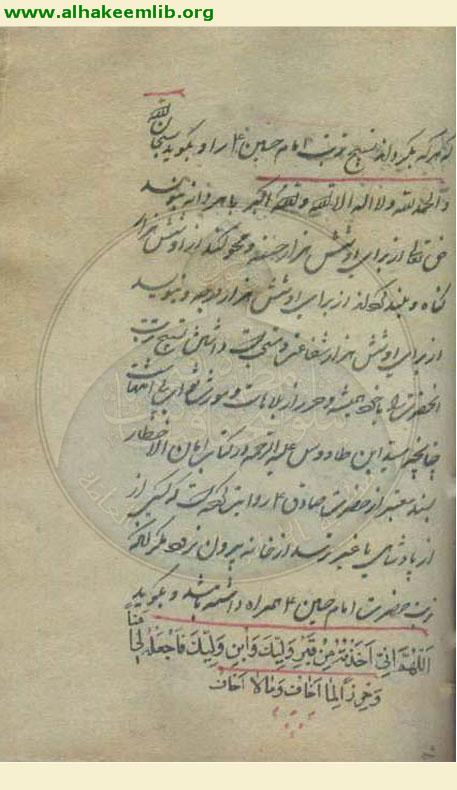 www.alhakeemlib.org
که هر که بگرداند تسبیح تربت امام حسین ع را و بگوید سبحان الله
و الحمد لله و لا اله الا الله و الله اکبر با هر دانه بنویسد
حق تعالی از برای او شش هزار حسنه و محو کند از او شش هزار
گناه و بلند کند از برای او شش هزار درجه و بنویسد
از برای او شش هزار شفاعت و مستحب است داشتن تسبیح تربت
انحضرت با خود همیشه و حرز از بلاها است و
چنانچه سید ابن طاوس علیه الرحمه در کتاب امان الاخطار
بسند معتبر از حضرت صادق ع روایت کرده است که کسی از
از پادشاهی یا غیر ترسد از خانه بیرون نرود مگر آنکه
تربت حضرت امام حسین ع همراه داشته باشد و بگوید
اَللّهُمَّ اِنّی اَخَذْتُهُ مِنْ قَبْرِ وَلِیِّکَ وَابْنِ وَلِیِّکَ فَاجْعَلْهُ لی اَمْناً
وَحِرْزاً لِما اَخافُ وَمالا اَخافُ